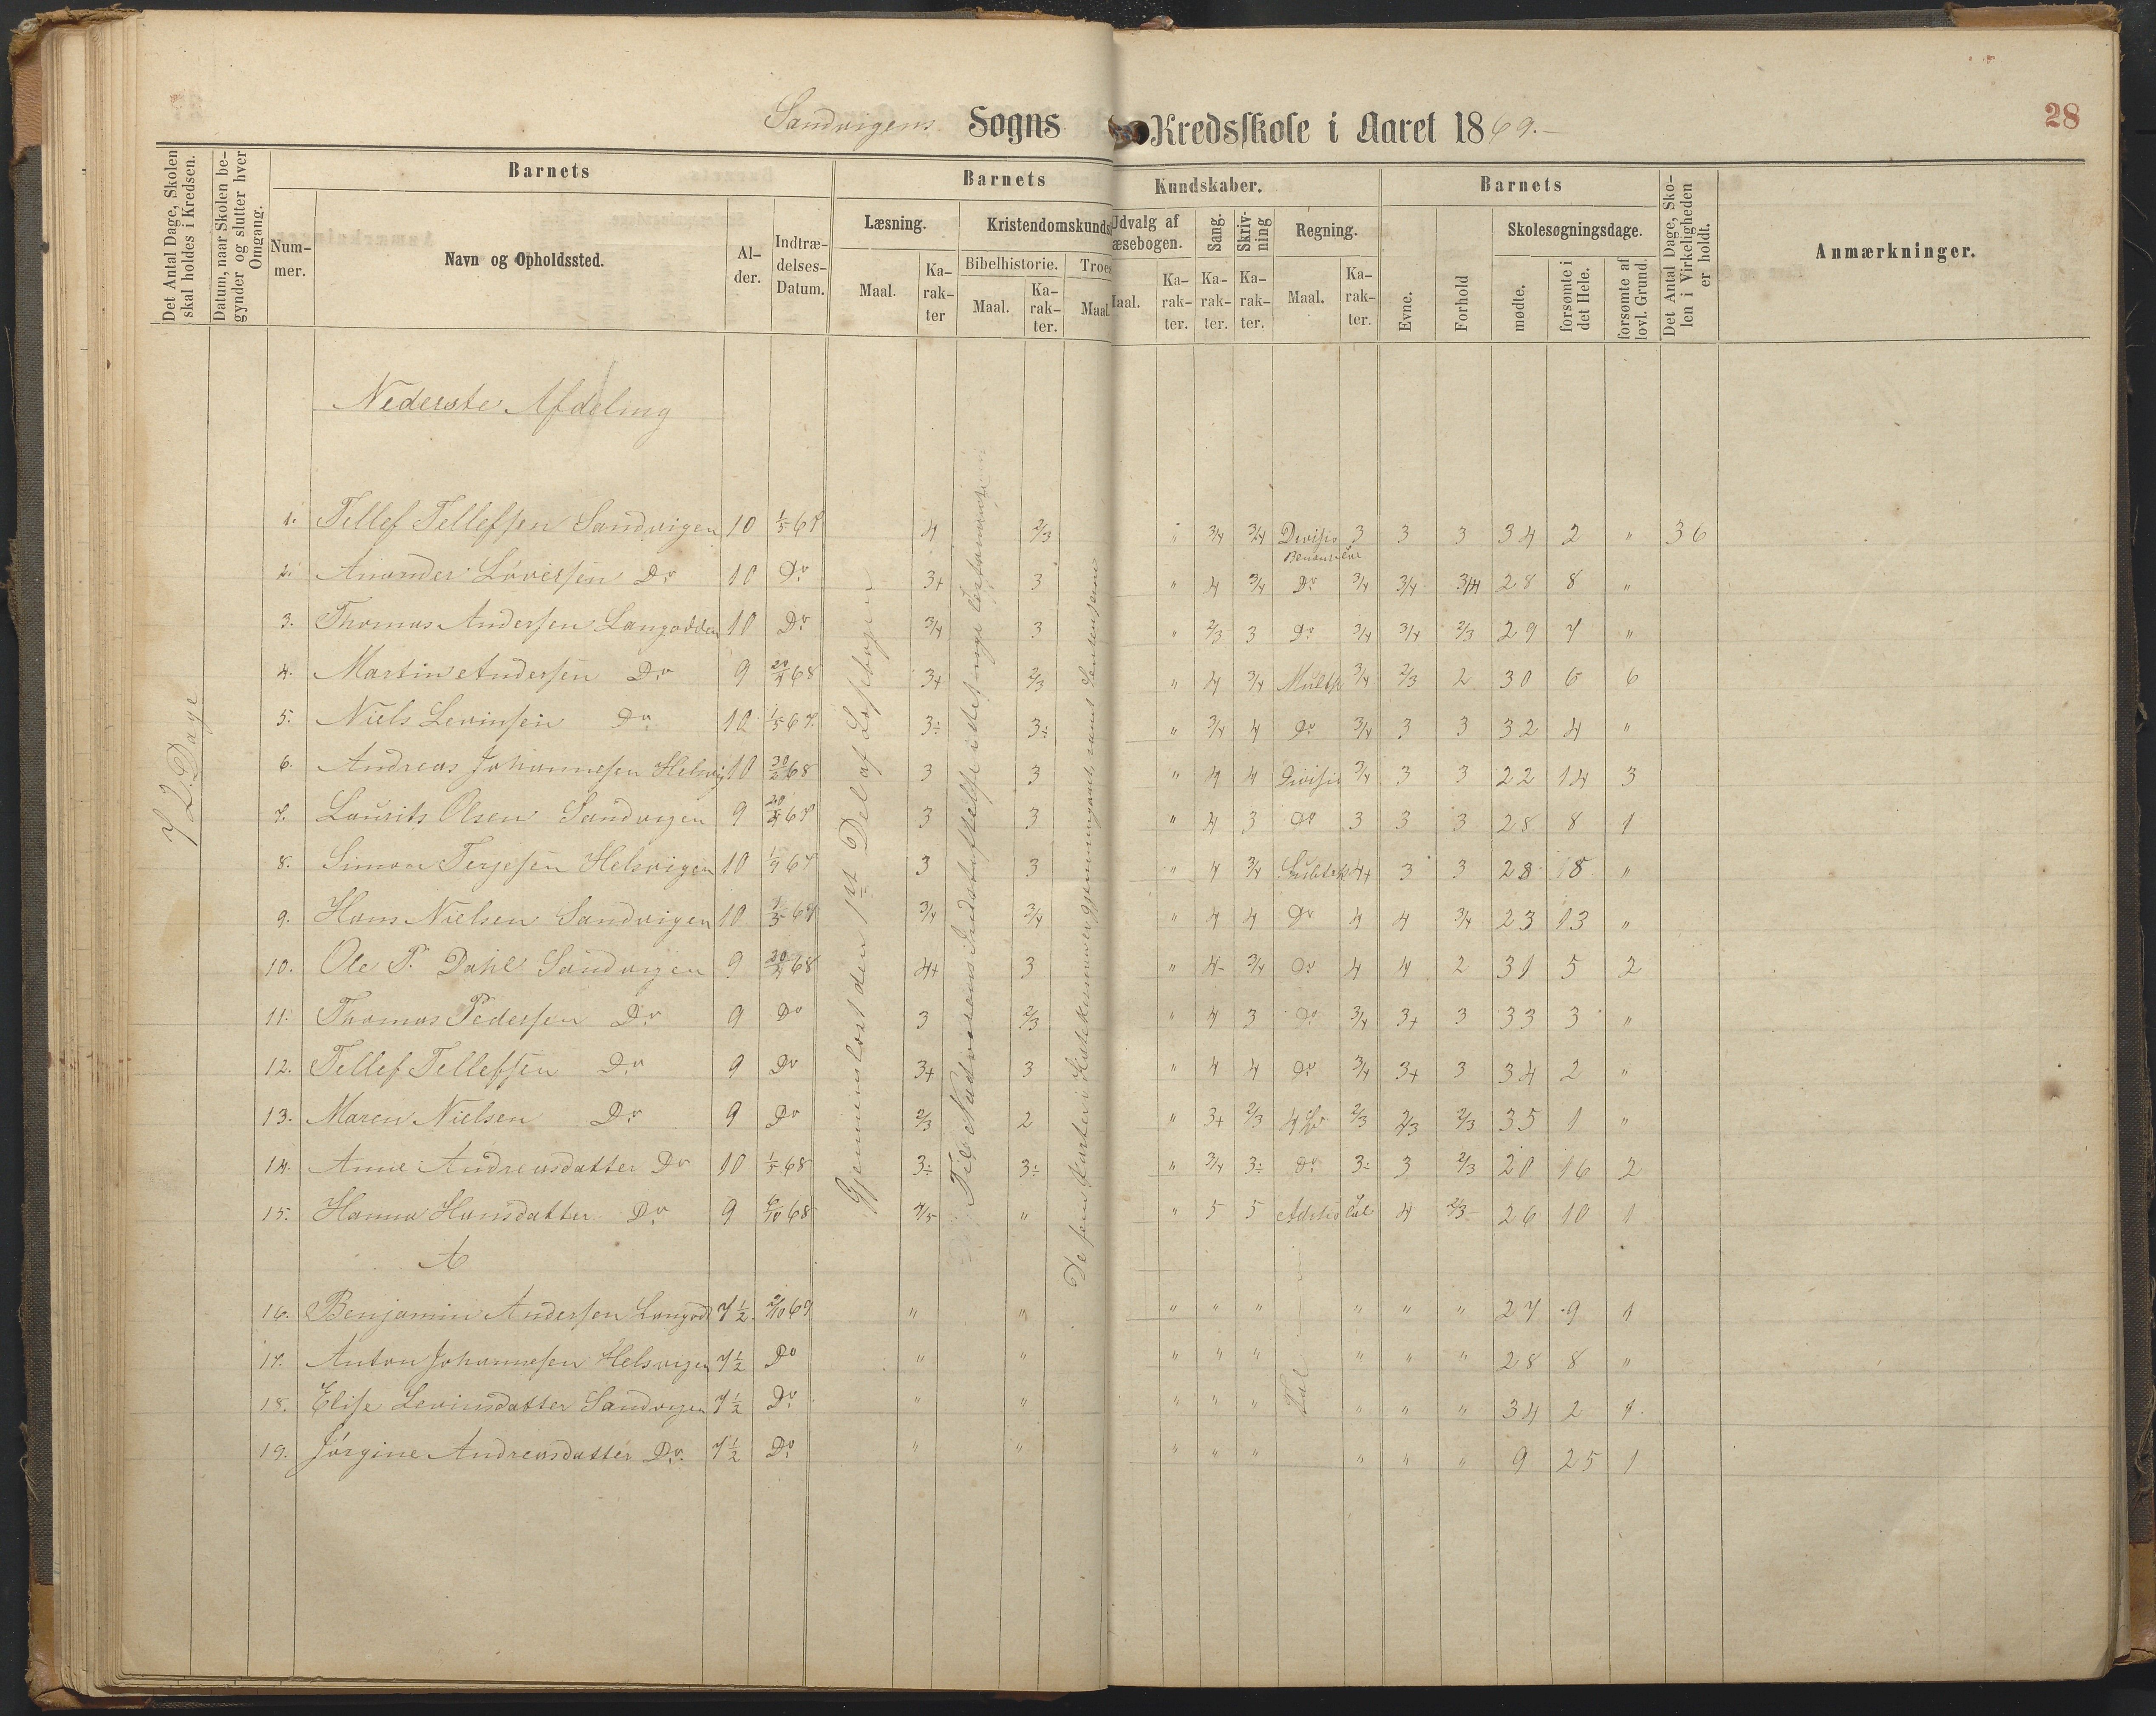 Sandvigens Sogns Kredsskole i Aaret 1869.
28
Det Antal Dage, Skolen skal holdes i Kredsen.
Datum, naar Skolen begynder og slutter hver Omgang.
Barnets
Barnets
Kundskaber.
Barnets
Det Antal Dage, Skolen i Virkeligheden er holdt.
Anmærkninger.
Nummer.
Navn og Opholdssted.
Alder.
Indtrædelses-Datum.
Læsning.
Kristendomskunds
Udvalg af
æsebogen.
Sang.
Skrivning
Regning.
Evne.
Forhold
Skolesøgningsdage.
Maal.
Karakter
Bibelhistorie.
Troes
Maal.
Karakter.
Maal.
Maal.
Karakter.
Karakter.
Karakter.
Maal.
Karakter.
mødte.
forsømte i det Hele.
forsømte af lovl. Grund.
Nederste Afdeling
72 Dage
Gjennemlæst den 1ste Del af Læsebogen
1. Tellef Tellefsen Sandvigen 10 1/5 67 4 2/3 " 3/4 3/4 Divisio 3 3 3 34 2 " 36
2. Do 10 Do 3+ 3 " 4 3/4 Do 3/4 3/4 28 8 "
3. Thomas Andersen Langodden 10 Do 3/4 3 " 2/3 3 Do 3/4 3/4 2/3 29 7 "
4. Martin Andersen Do 9 68 3+ 2/3 " 4 3/4 Multip 3/4 2/3 2 30 6 6
5. Niels Levinsen Do 10 1/5 67 3÷ 3÷ " 3/4 4 Do 3/4 3 3 32 4 "
6. Andreas Johannesen Helsvig 10 68 3 3 " 4 4 Divisio 3/4 3 3 22 14 3
7. Laurits Olsen Sandvigen 9 67 3 3 " 4 3 Do 3 3 3 28 8 1
8. Simon Terjesen Helsvigen 10 67 3 3 " 4 3/4 4+ 3 3 28 18 "
9. Hans Nielsen Sandvigen 10 67 3/4 3/4 " 4 4 Do 4 4 3/4 23 13 "
10. Ole P. Dahl Sandvigen 9 68 4+ 3 " 4- 3/4 Do 4 4 2 31 5 2
11. Thomas Pedersen Do 9 Do 3 2/3 " 4 3 Do 3/4 3+ 3 33 3 "
12. Tellef Tellefsen Do 9 Do 3+ 3 " 4 4 Do 3/4 3+ 3 34 2 "
13. Maren Nielsen Do 9 Do 2/3 2 " 3+ 2/3 2/3 2/3 2/3 35 1 "
14. Anne Andreasdatter Do 10 1/5 68 3÷ 3÷ " 3/4 3÷ Do 3÷ 3 2/3 20 16 2
15. Hanna Hansdatter Do 9 6/10 68 4/5 " " 5 5 4 2/3 26 10 1
A
16. Benjamin Andersen Langod 7 1/2 67 " " " " " " " " 27 9 1
17. Anton Johannesen Helsvigen 7 1/2 Do " " " " " " " " 28 8 "
18. Elise Levinsdatter Sandvigen 7 1/2 Do " " " " " Tal " " " 34 2 1
19. Jørgine Andreasdatter Do 7 1/2 Do " " " " " " " " 9 25 1